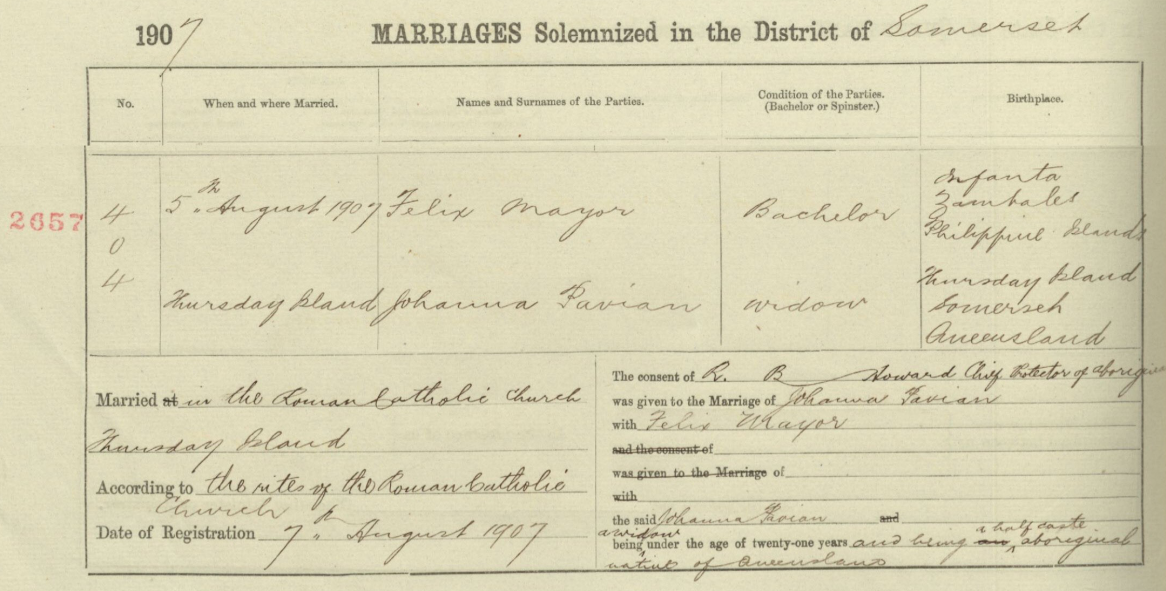 1907 MARRIAGES Solemnized in the District of Somerset
No. When and where Married. Names and Surnames of the Parties. Condition of the Parties. (Bachelor or Spinster.) Birthplace.
2657
404
5th August 1907 Felix Mayor Bachelor Infanta
Zambales
Philippine Islands
Thursday Island Johanna Favian Widow Thursday Island
Somerset
Queensland
Married at in the Roman Catholic Church
Thursday Island
According to the rites of the Roman Catholic
Church
Date of Registration 7th August 1907
The consent of R. B Howard Chief Protector of aborigines
was given to the Marriage of Johanna Favian
with Felix Mayor
and the consent of
was given to the Marriage of
with
the said Johanna Favian and
a widow
being under the age of twenty-one years and being an a half caste aboriginal
native of Queensland